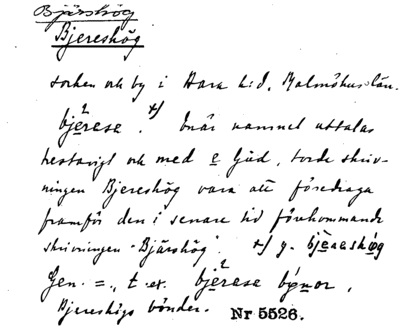 Bjärshög
Bjereshög
socken och by i Bara h:d, Malmöhus län.
bjerese. +) Enär namnet uttalas
trestavigt och med e ljud, torde skriv-
ningen Bjereshög vara att föredraga
framför den i senare tid förekommande
skrivningen "Bjärshög". +) y.
Gen. =, t. ex. bjerese bönor,
Bjereshögs bönder. Nr 5526.